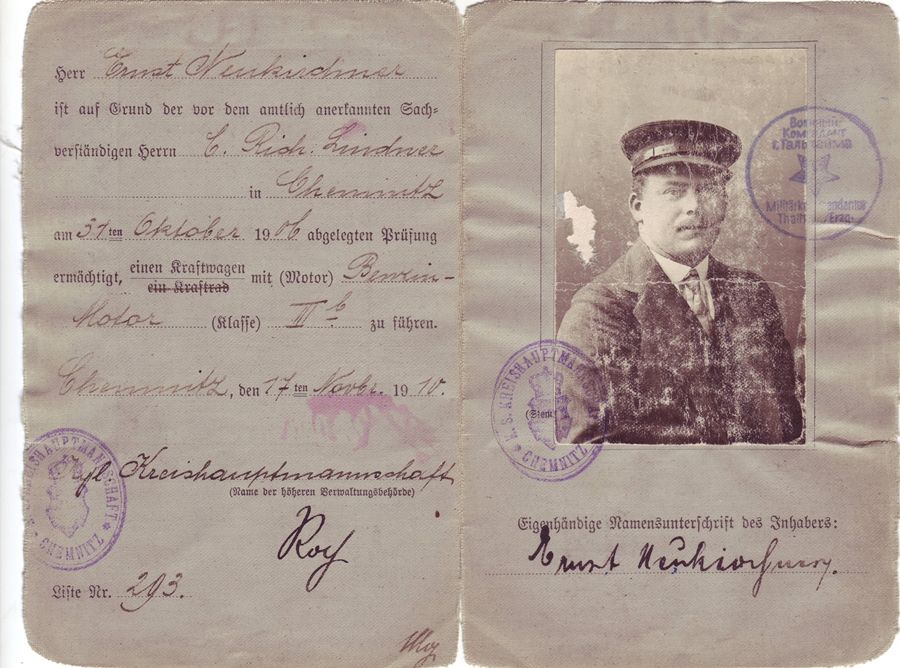 Herr Ernst Neukirchner
ist auf Grund der vor dem amtlich anerkannten Sach-
verständigen Herrn C. Rich. Lindner
in Chemnitz
am 31ten Oktober 1906 abgelegten Prüfung
ermächtigt, einen Kraftwagen mit (Motor) Benzin-
ein Kraftrad
Motor (Klasse) III b zu führen.
Chemnitz, den 17ten Novbr. 1910.
KREISHAUPTMANNSCHAFT
CHEMNITZ
Kgl. Kreishauptmannschaft
(Name der höheren Verwaltungsbehörde)
Liste Nr. 293.
Militärk
Thalh Erzg.
K. S. KREISHAUPTMANNSCHAFT
CHEMNITZ
Eigenhändige Namensunterschrift des Inhabers:
Ernst Neukirchner.